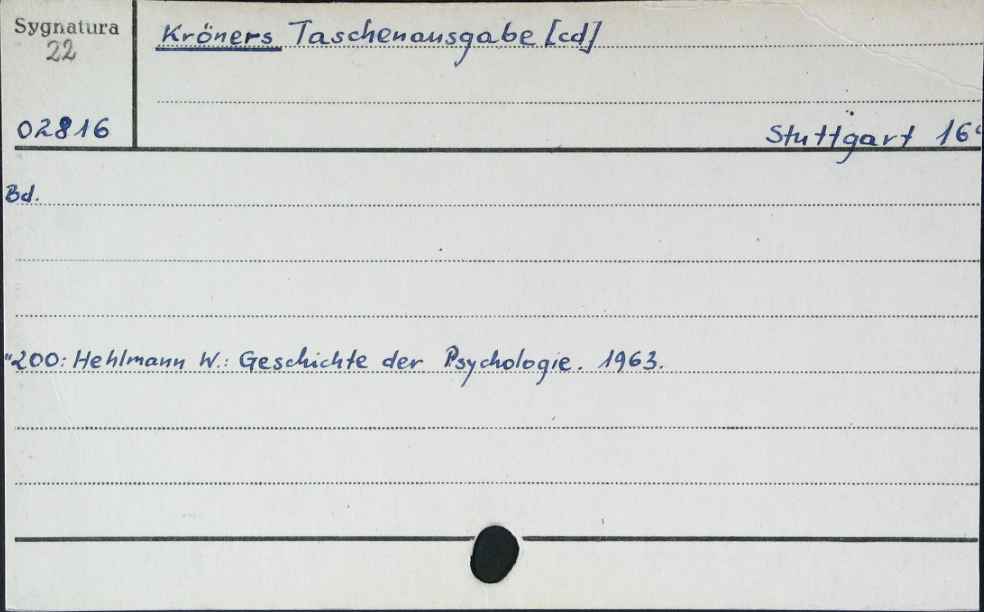 Sygnatura
22
Kröners Taschenausgabe [cd]
02816
Stuttgart 16°
Bd.
"200: Hehlmann W.: Geschichte der Psychologie. 1963.